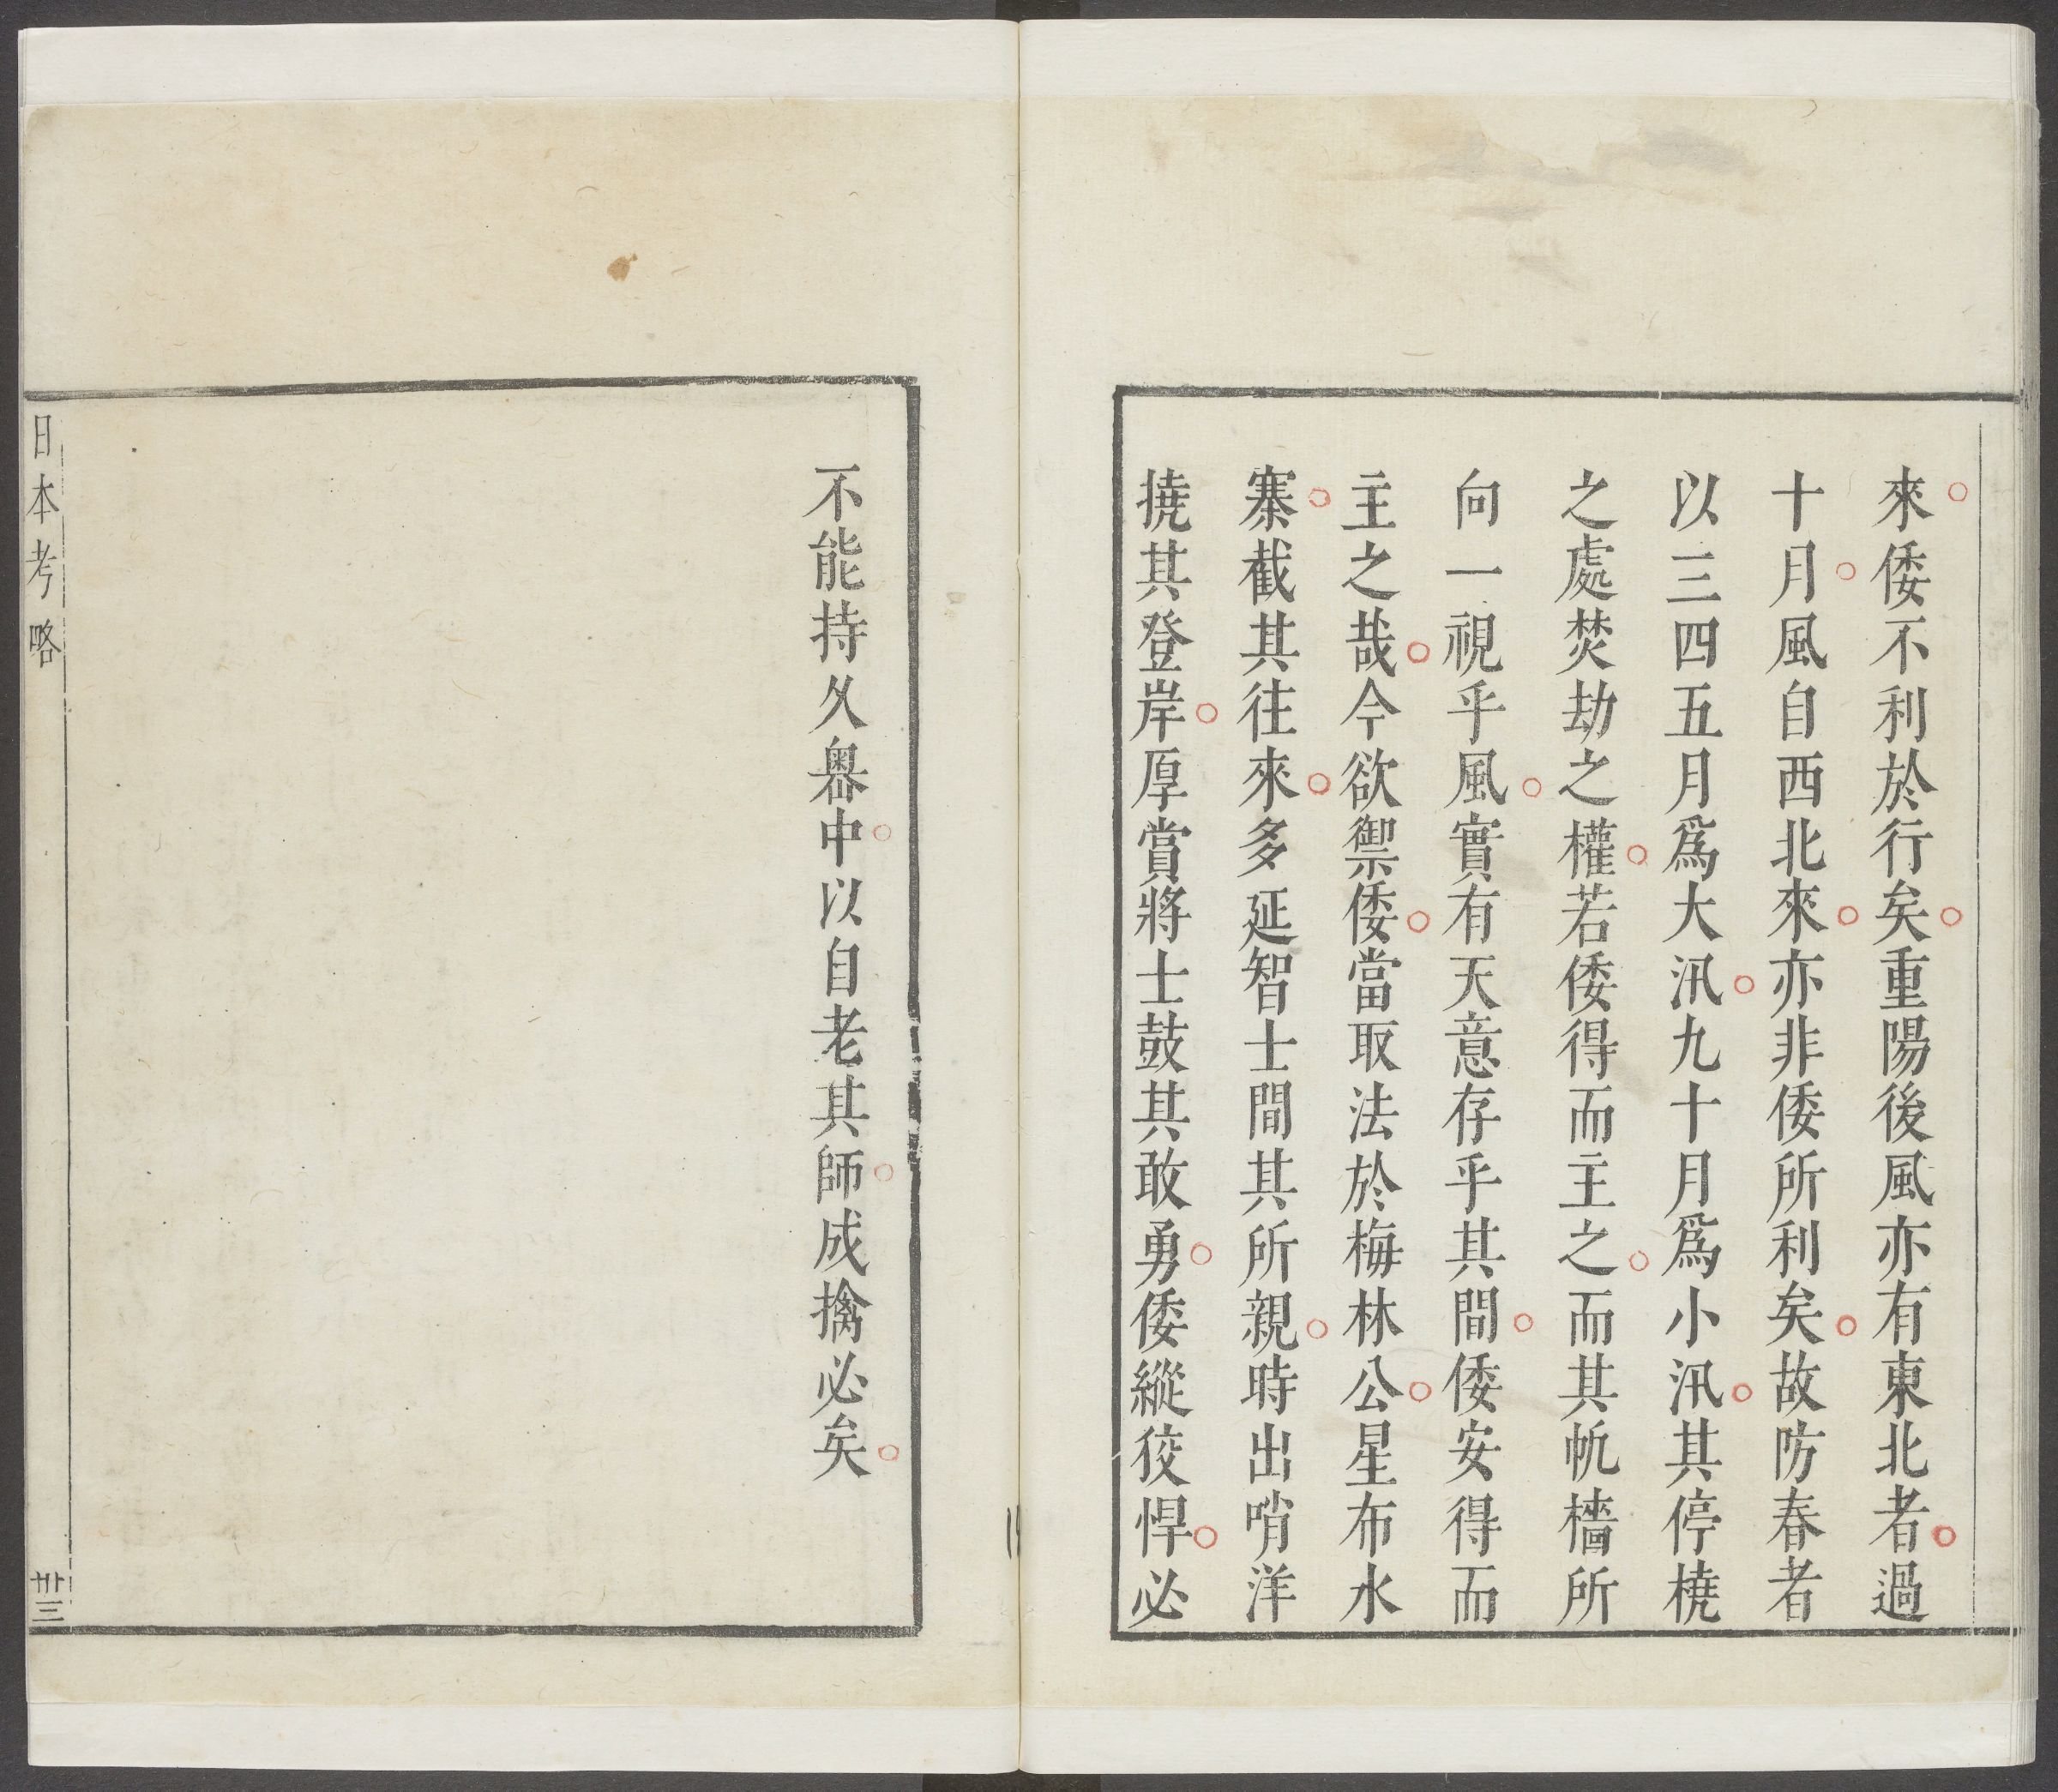 來倭不利於行矣重陽後風亦有東北者過
十月風自西北來亦非倭所利矣故防春者
以三四五月爲大汛九十月爲小汛其停橈
之處焚劫之權若倭得而主之而其帆檣所
向一視乎風實有天意存乎其間倭安得而
主之哉今欲禦倭當取法於梅林公星布水
寨截其往來多延智士間其所親時出哨洋
撓其登岸厚賞將士鼓其敢勇倭縱狡悍必
不能持久舉中以自老其師成擒必矣
日本考略
廿三